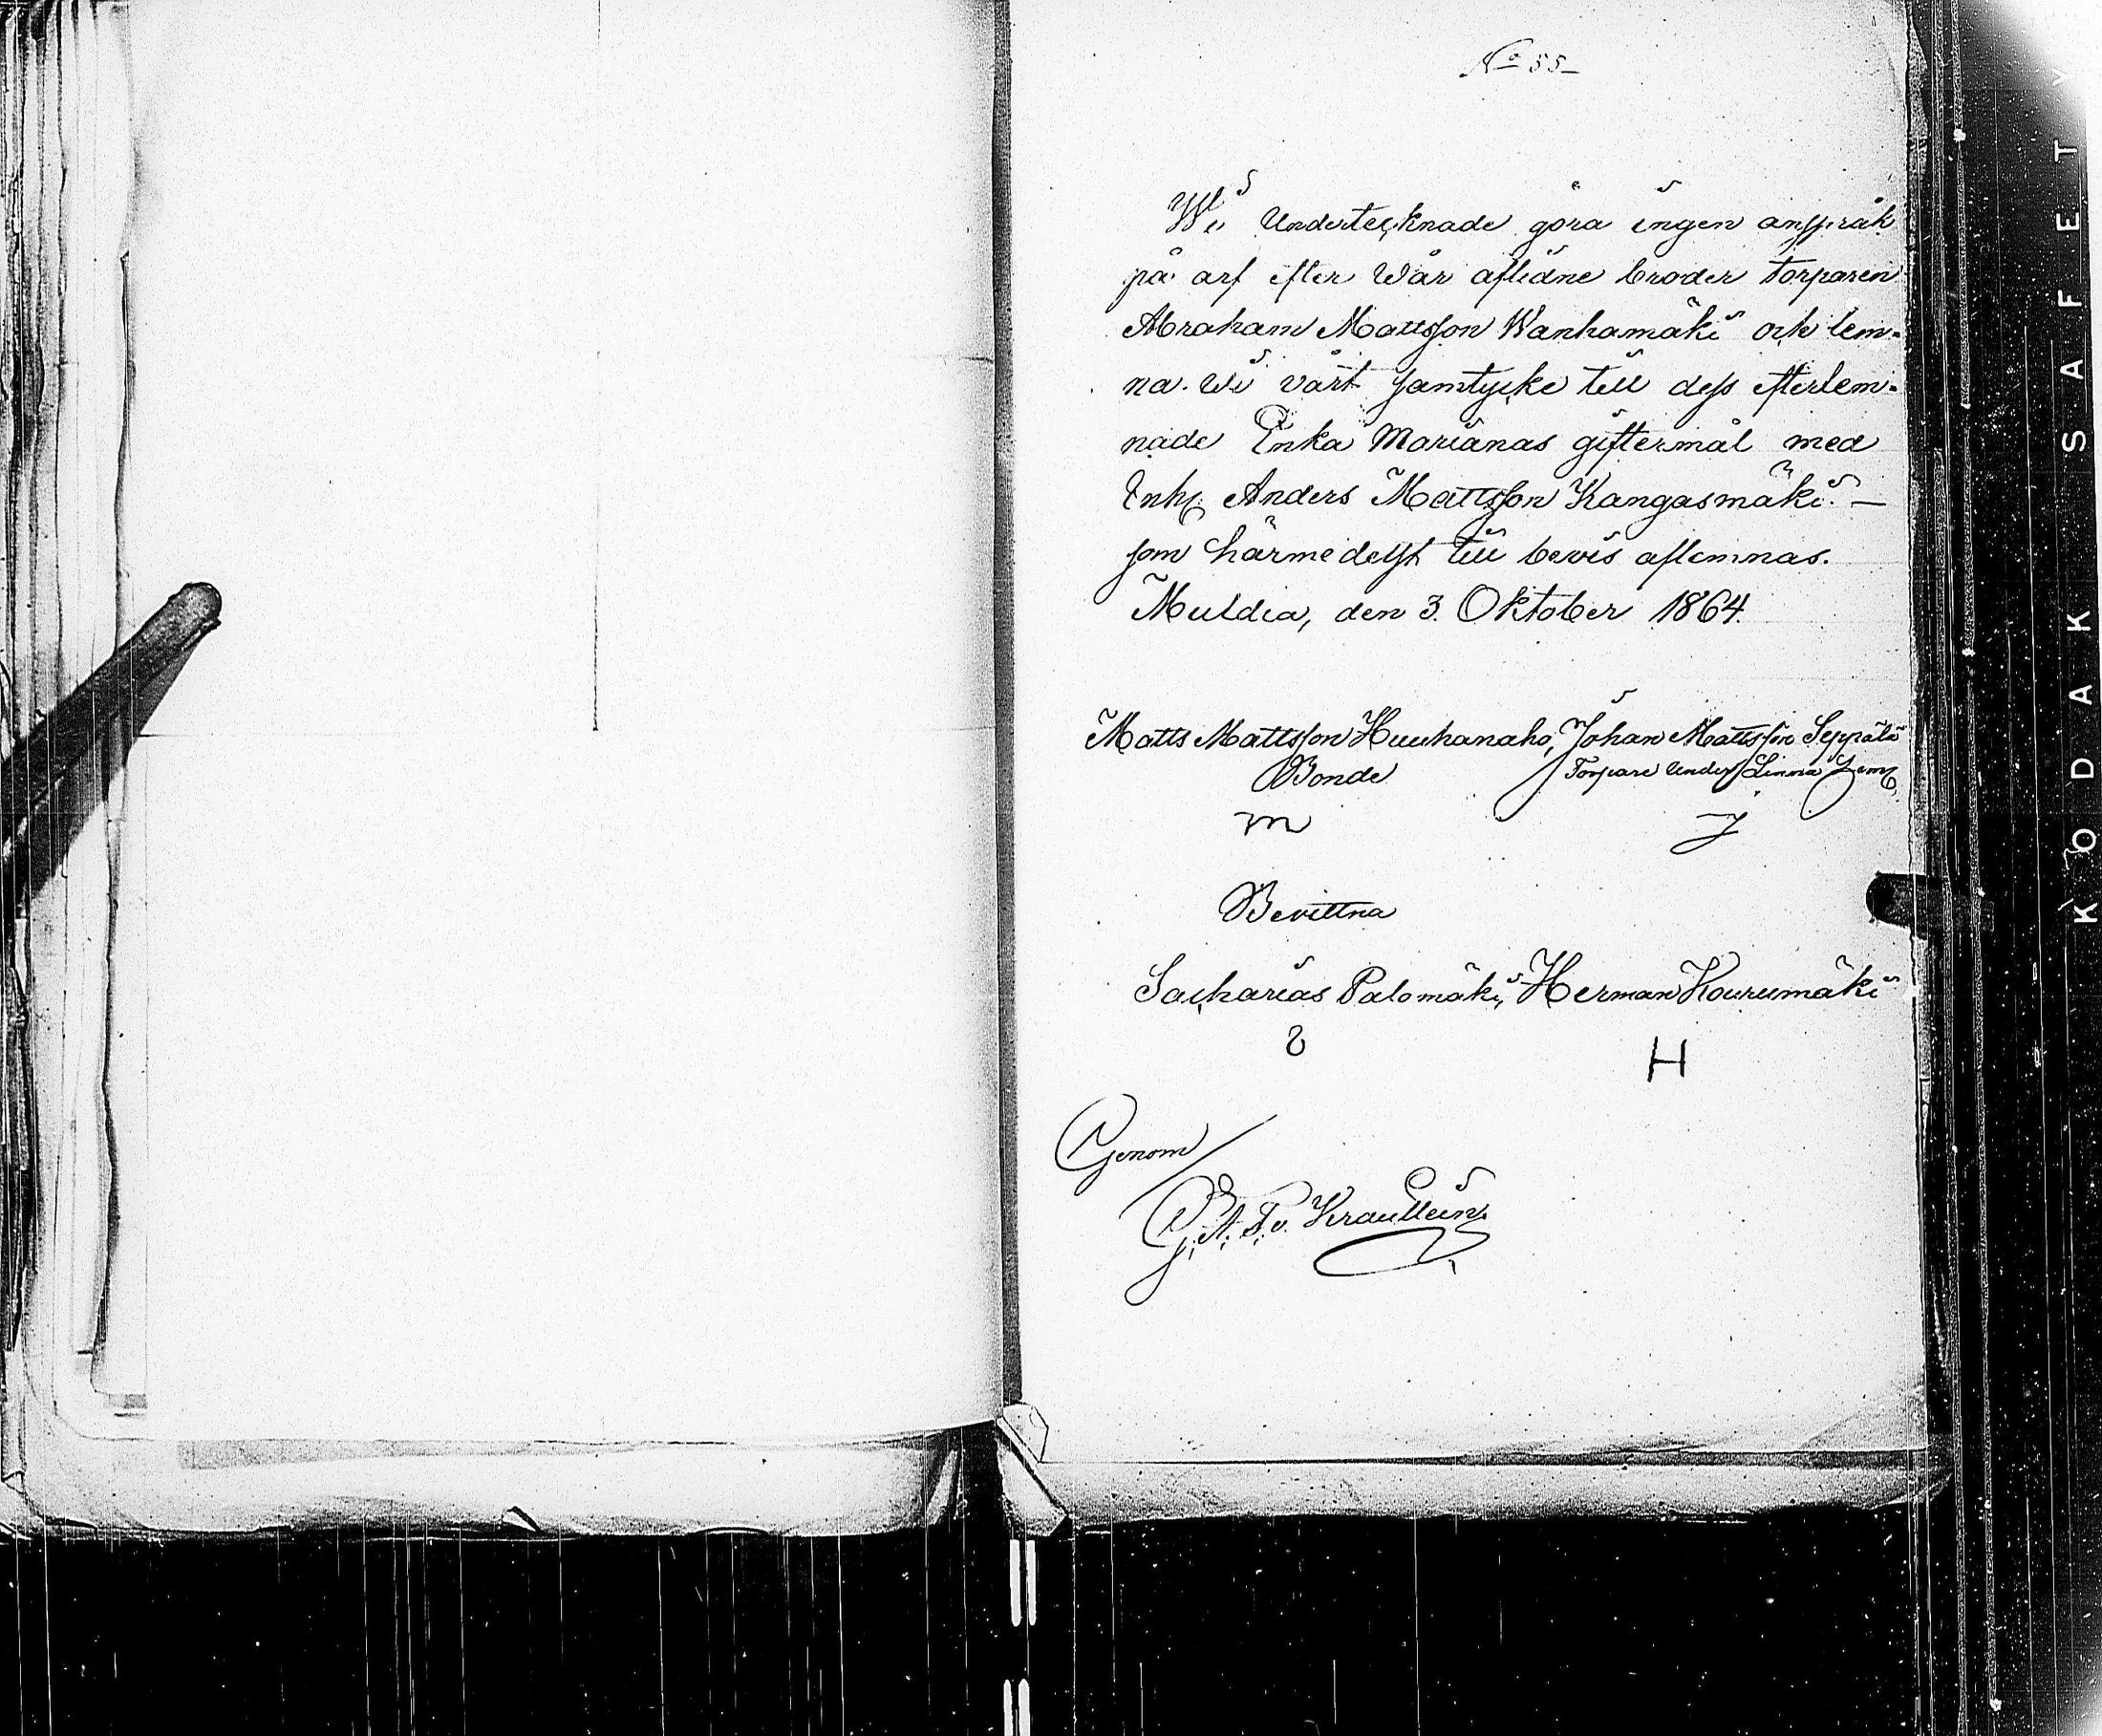 No 55
Wi Undertecknade göra ingen anspråk
på arf efter Wår aflidne broder torparen
Abraham Mattsson Wanhamäki och lem-
na Wi vårt samtycke till dess efterlem-
nade Enka Marianas giftermål med
Enkl. Anders Mattsson Kangasmäki. —
som härmedelst till bevis aflemnas.
Muldia, den 3. Oktober 1864.
Matts Mattsson Huuhanaho, Johan Mattsson Seppälä
Bonde Torpare Under Linna
m J
Bevittna
Sacharias Palomäki, Herman Kourumäki
H
Genom
G. A. F. v. Kraullein
KODAK SAFETY